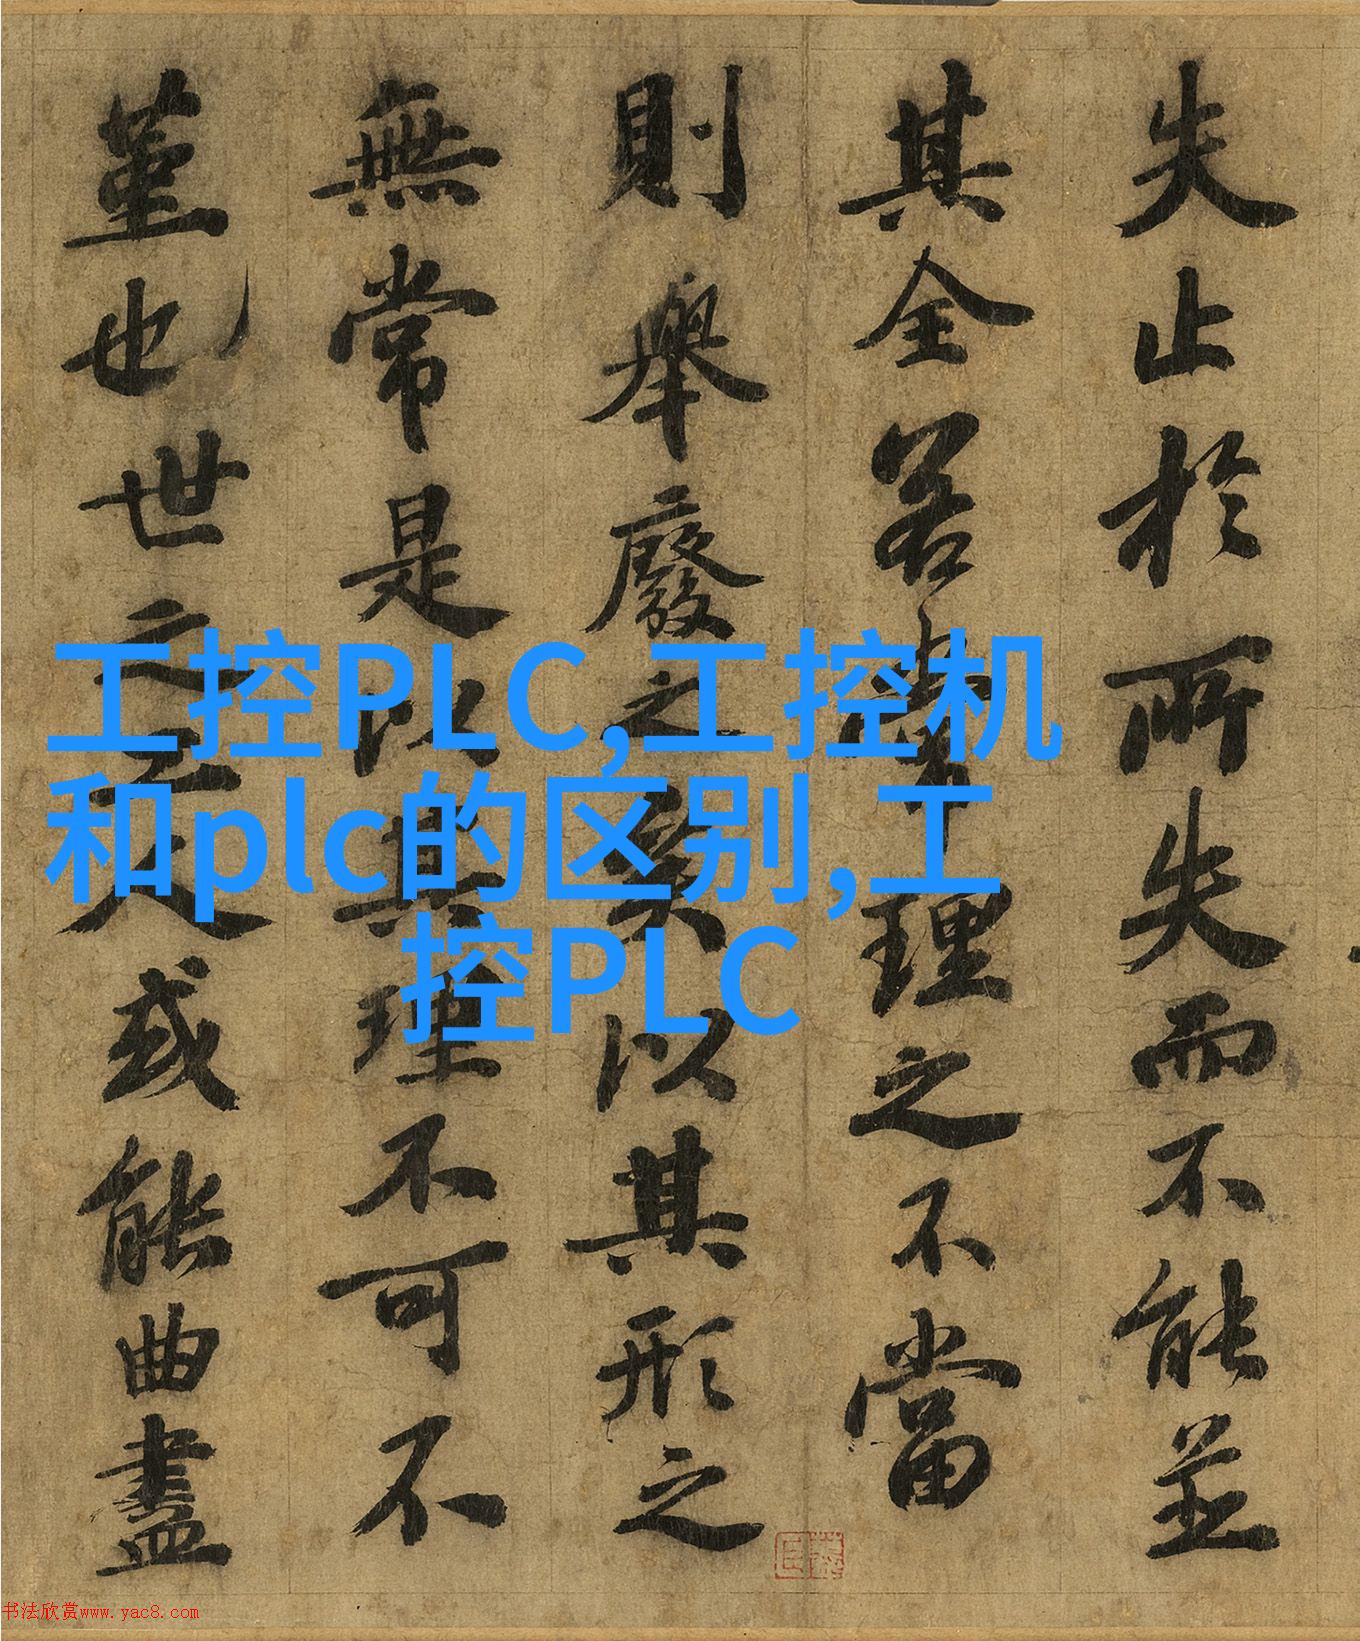 失止於所失而不能並
其全若常理之不當
則舉廢之矣以其形之
無常是以其理不可不
堇也世之工人或能曲盡
工控PLC,工控机
和plc的区别,工
控PLC
书法欣赏www.yac8.com